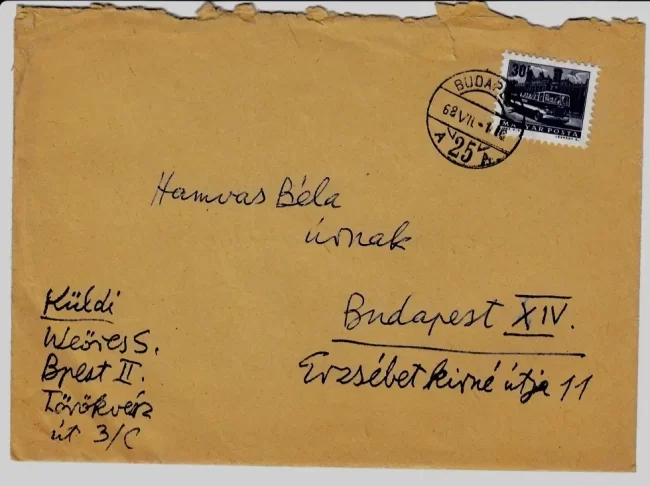 30
MAGYAR POSTA
BUDAP
68 VII. -1. 18
25
Hamvas Béla
úrnak
Budapest XIV.
Erzsébet kirné útja 11
Küldi
Weöres S.
Bpest II.
Törökvész
út 3/C